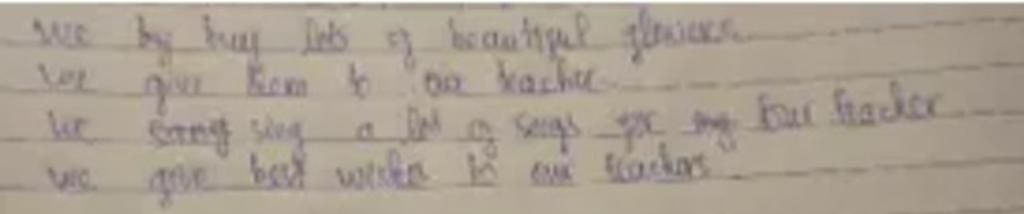 We by buy lots of beautiful flowers.
We give them to our teacher.
We song sing a lot of songs for my our teacher
We give best wishes to our teachers